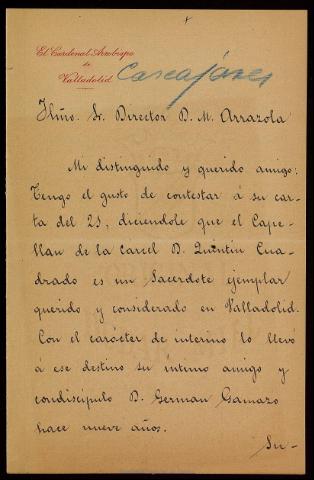 El Cardenal Arzobispo
de
Valladolid.
Cascajares
Ilmo. Sr. Director D. M. Arrazola
Mi distinguido y querido amigo:
Tengo el gusto de contestar á su car-
ta del 25, diciendole que el Cape-
llan de la carcel D. Quintin Cua-
drado es un Sacerdote ejemplar
querido y considerado en Valladolid.
Con el carácter de interino lo llevó
á ese destino su íntimo amigo y
condiscípulo D. German Gamazo
hace nueve años.
Su-